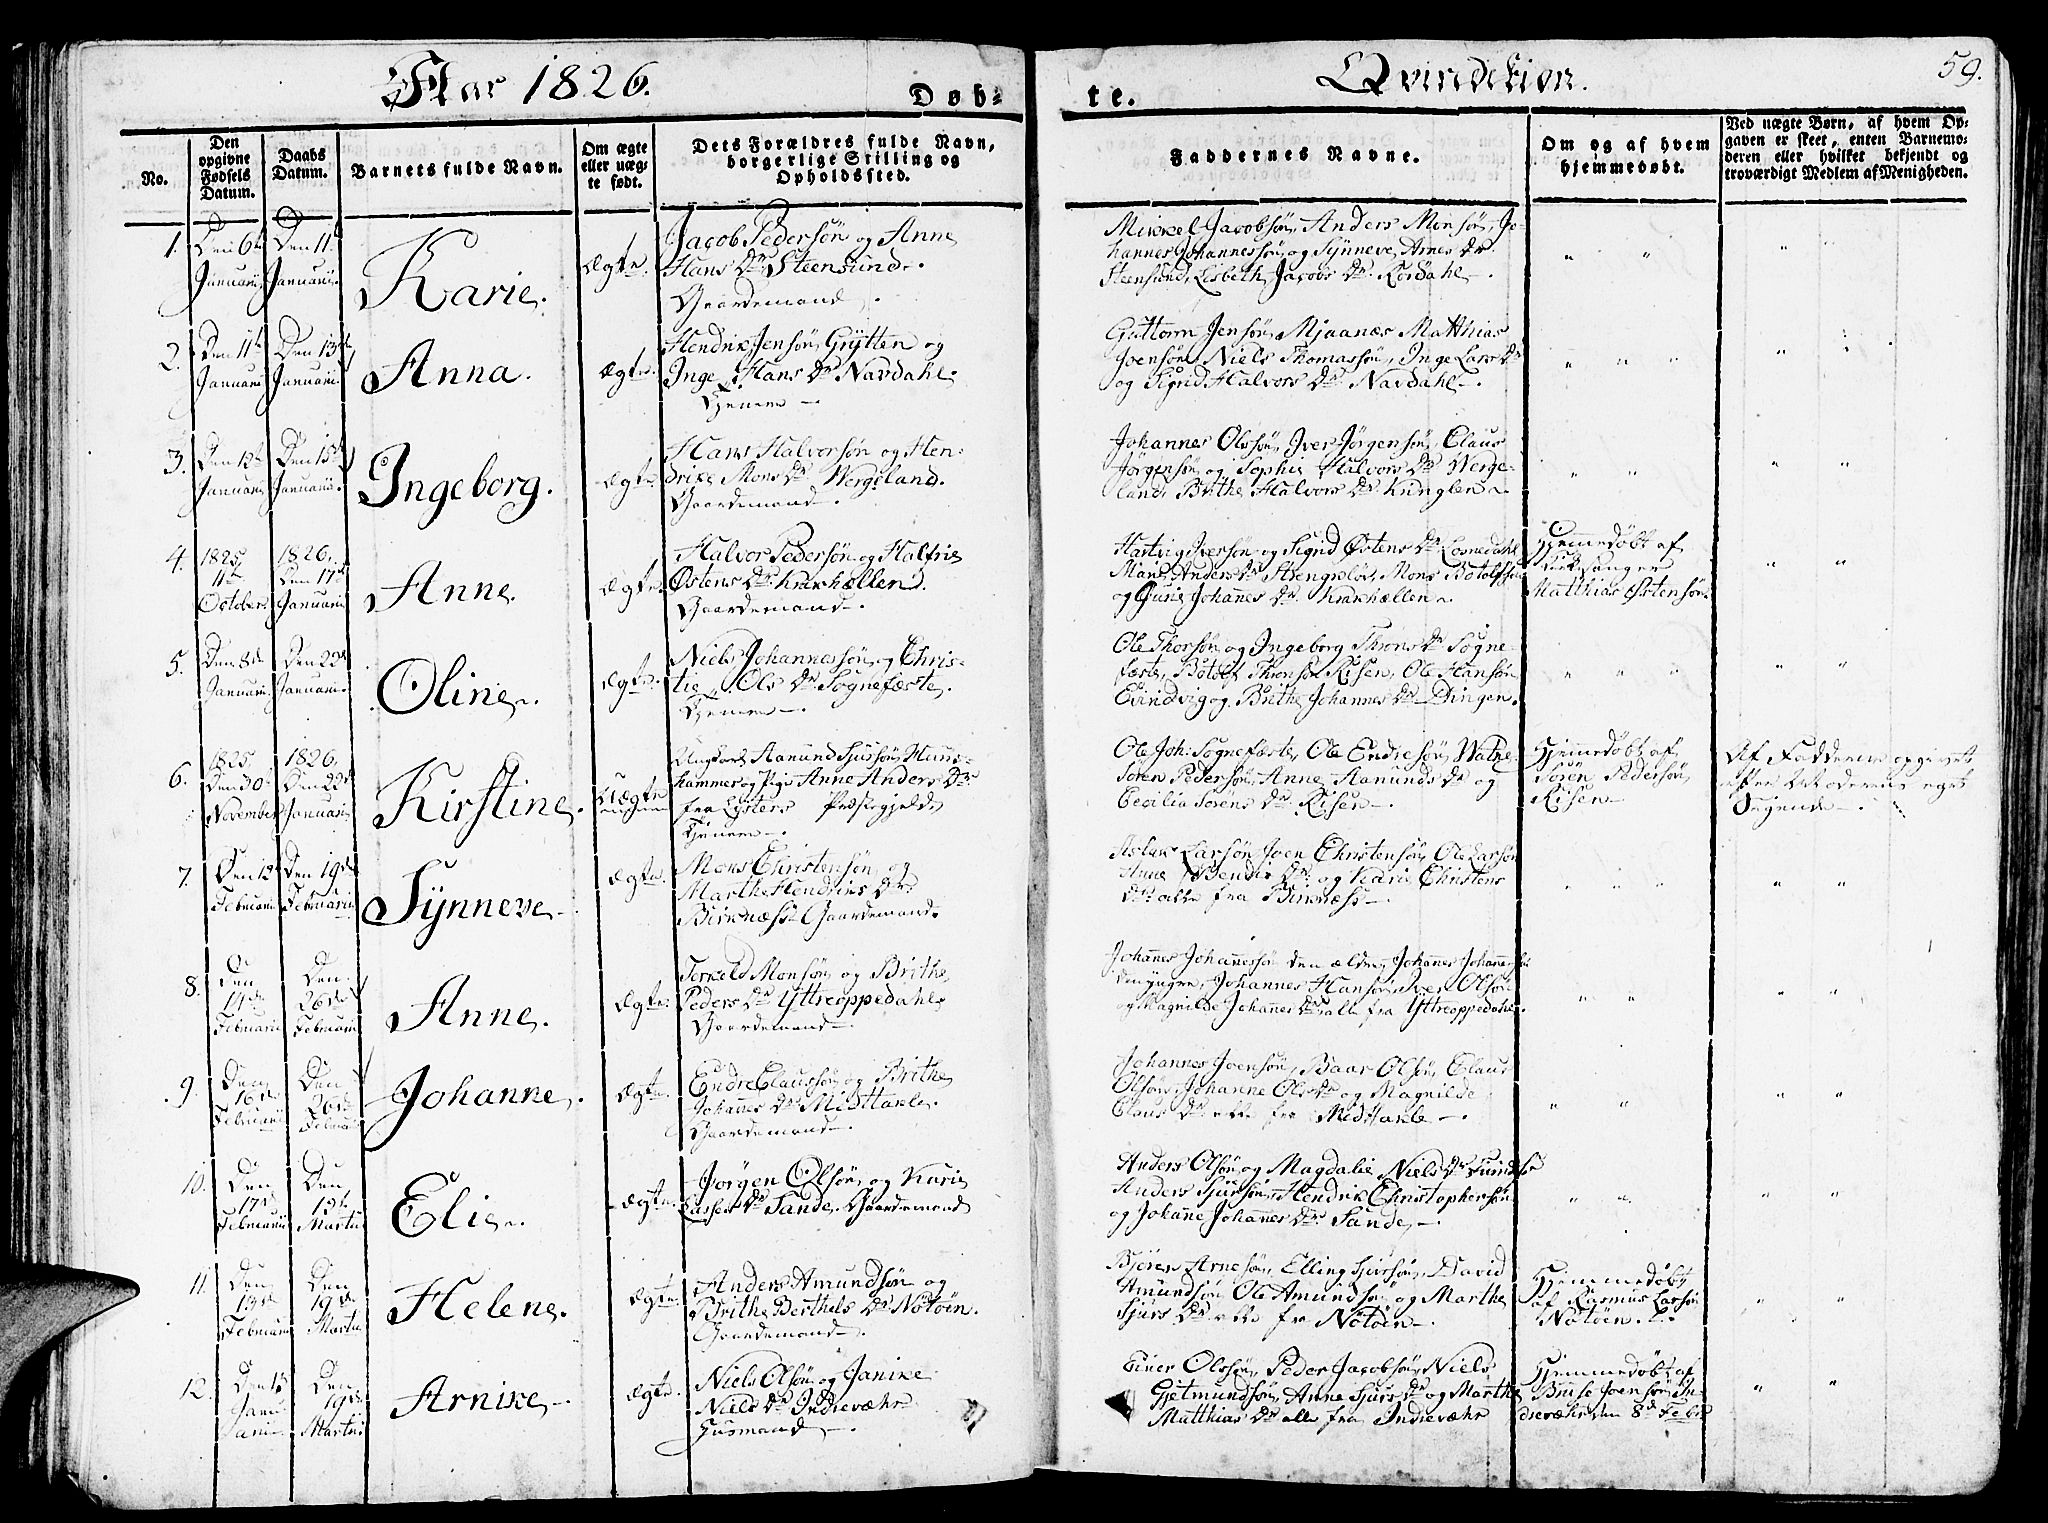 Aar 1826.
Døb-
te.
Qvindekiøn.
59.
No.
Den opgivne Fødsels Datum.
Daabs Datum.
Barnets fulde Navn.
Om ægte eller uæg-te født.
Dets Forældres fulde Navn, borgerlige Stilling og Opholdssted.
Faddernes Navne.
Om og af hvem hjemmedøbt.
Ved uægte Børn, af hvem Op-gaven er skeet, enten Barnemo-deren eller hvilket bekjendt og troværdigt Medlem af Menigheden.
1.
Den 6te Januarii
Den 11te Januarii.
Karie.
Ægte.
Jacob Pedersøn og Anne
Hans Dr. Steensund.
Gaardemand.
Mikkel Jacobsøn, Anders Monsøn, Jo-
hannes Johannessøn og Synneve Arnes Dr.
Steensund, Lisbeth Jacobs Dr.
2.
Den 11te Januarii
Den 13de Januarii.
Anna.
Ægte.
Hendrik Jensøn Grytten og
Inge Hans Dr. Nardahl.
Guttorm Jensøn Mjaanæs Matthias
Joensøn, Niels Thomassøn, Inge Lars Dr.
og Sigrid Halvors Dr. Nardahl.
3.
Januarii
Den 15de Januarii.
Ingeborg.
Ægte.
Hans Halvorsøn og Hen-
drike Mons Dr. Wergeland.
Gaardemand.
Johannes Olssøn, Iver Jørgensøn, Claus
Jørgensøn og Sophie Halvors Dr. Werge-
land, Brithe Halvors Dr.
4.
1825.
11te
October
1826.
Den 17de
Januarii
Anne.
Ægte.
Halvor Pedersøn og Halfrie
Østens Dr. Krakhællen.
Gaardemand.
Hartvig Iversøn og Sigrid Østens Dr. Losnedahl
Marie Anders Dr. Mons Botolfssøn
og Gurie Johannes Dr. Krakhællen.
Hjemmedøbt af
Kirkesanger
Matthias Østensøn.
5.
Den 8de Januarii.
Den 22de Januarii.
Oline.
Ægte.
Niels Johannessøn og Chris-
tie Ols Dr. Sognefæste.
Ole Thorsøn og Ingeborg Throns Dr. Sogne-
fæste, Botolf Thronsøn Risen, Ole Hansøn
Evindvig og Brithe Johannes Dr. Dingen.
6.
1825.
Den 30te
November
1826.
Den 22de
Januarii
Kirstine.
Uægte
Ungkarl Aamund Sjursøn Huus-
kammer og Pige Anne Anders Dr.
fra Lysters Præstegjeld,
Ole Joh: Sognefæste, Ole Endresøn Watne
Søren Pedersøn, Anne Aamunds Dr. og
Cecilia Sørens Dr. Risen.
Hjemmedøbt af
Søren Pedersøn
Risen
Af Fadderne opgivet
efter Moderens eget
Sigende.
7.
Den 12te Februarii
Den 19de Februarii.
Synneve.
Ægte.
Mons Christensøn og
Marthe Hendriks Dr.
Birknæs Gaardemand.
Aslak Larsøn, Joen Christensøn, Ole Larsøn
Anne Bendix Dr. og Karie Christens
Dr. alle fra Birknæss.
8.
Den
14de
Februarii
Den
26de
Februarii
Anne.
Ægte.
Torkeld Monsøn og Brithe
Peders Dr. Yttreoppedahl.
Gaardemand.
Johanes Johanessøn den ældre, Johanes Johanessøn
den yngre, Johannes Hansøn, Iver Olsøn
og Magnilde Johanes Dr. alle fra Yttreoppedahl.
9.
Den
16de
Februarii
Den
26de
Februarii
Johanne.
Ægte.
Endre Claussøn og Brithe
Johanes Dr. Midttun
Gaardemand.
Johannes Joensøn, Baar Olsøn, Claus
Olsøn, Johanne Ols Dr. og Magnilde
Claus Dr. alle fra
10.
Den
17de
Februarii
Den
Martii
Elie.
Ægte.
Jørgen Olsøn og Karie
Lasses Dr. Sande. Gaardemand
Anders Olsøn og Magdalie Niels Dr.
Anders Sjursøn, Hendrik Christophersøn
og Johane Johanes Dr. Sande.
11.
Den
13de
Februarii
Den
19de
Martii
Helene.
Ægte.
Anders Amundsøn og
Brithe Berthels Dr. Nötöen.
Gaardemand.
Bjøren Arnesøn, Elling Sjursøn, David
Amundsøn, Ole Amundsøn og Marthe
Sjurs Dr. alle fra Nötöen.
Hjemmedøbt
af Rasmus Larsøn
Nötöen.
12.
Den 13
Janu-
arii
Den
19de
Martii
Arnike.
Ægte.
Niels Olsøn og Janike
Niels Dr. Indrevæhr
Husmand.
Einer Olssøn, Peder Jacobsøn, Niels
Gjetmundsøn, Anne Sjurs Dr. og Marthe
Matthias Dr. alle fra Indrevæhr
Hjemmedøbt af
Joensøn In-
drevæhr den 8de Febr.